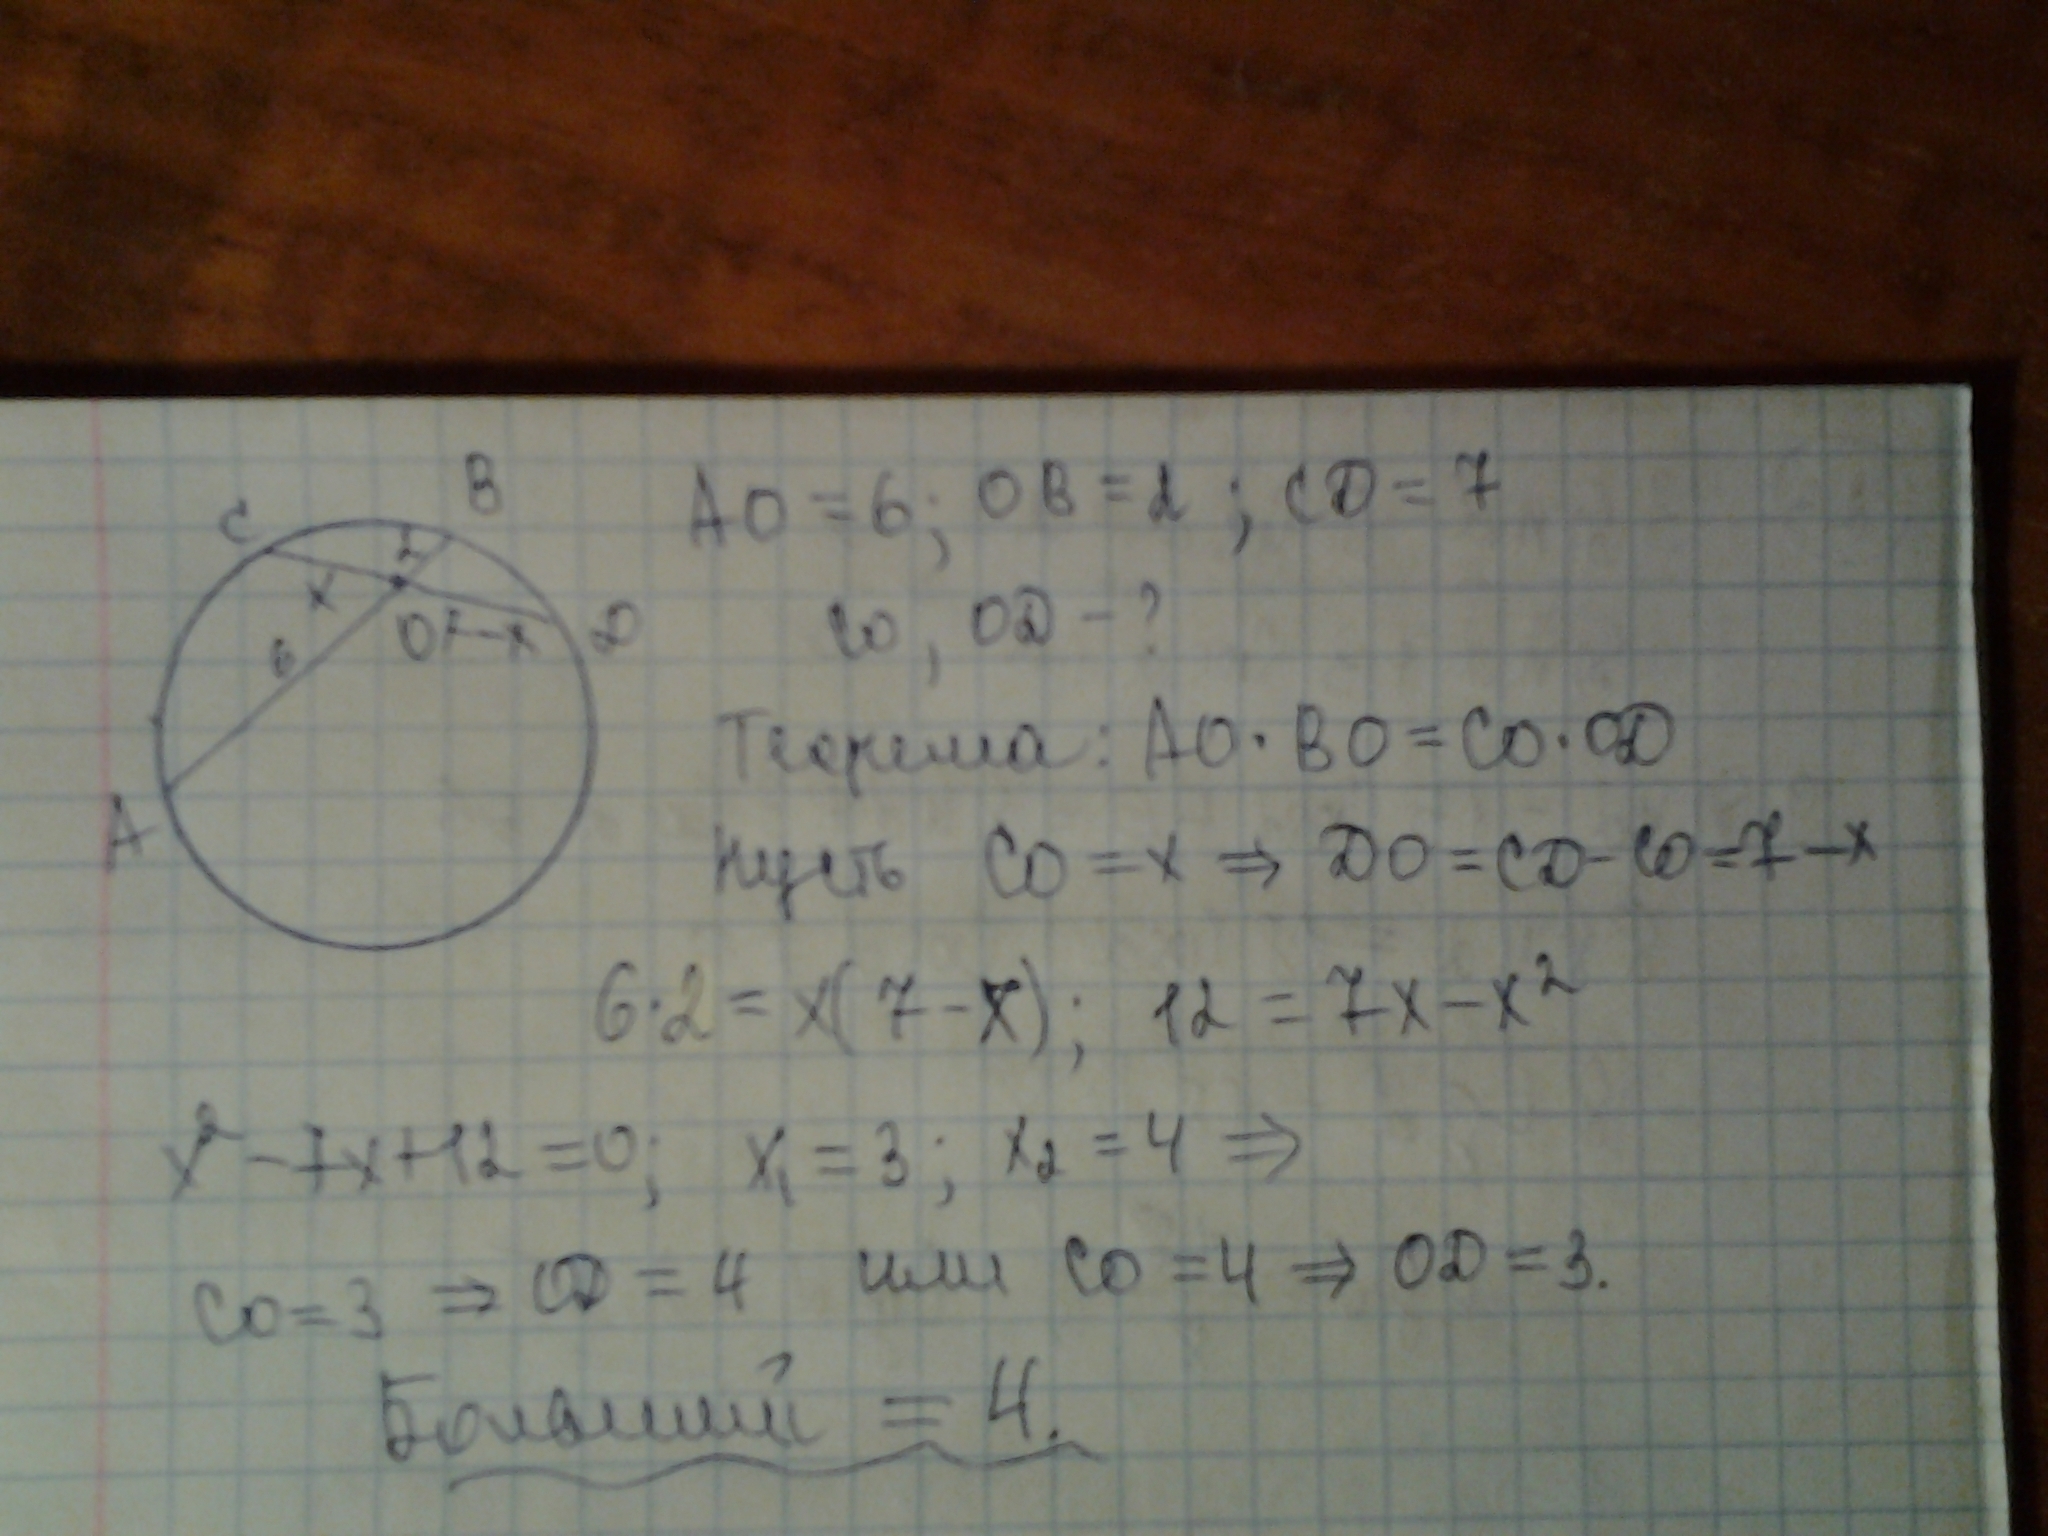 C B
2
x
O 7-x D
6
A
AO = 6; OB = 2; CD = 7
CO, OD - ?
Теорема: AO · BO = CO · OD
Пусть CO = x ⇒ DO = CD - CO = 7 - x
6·2 = x(7 - x); 12 = 7x - x²
x² - 7x + 12 = 0; x₁ = 3; x₂ = 4 ⇒
CO = 3 ⇒ OD = 4 или CO = 4 ⇒ OD = 3.
Больший = 4.